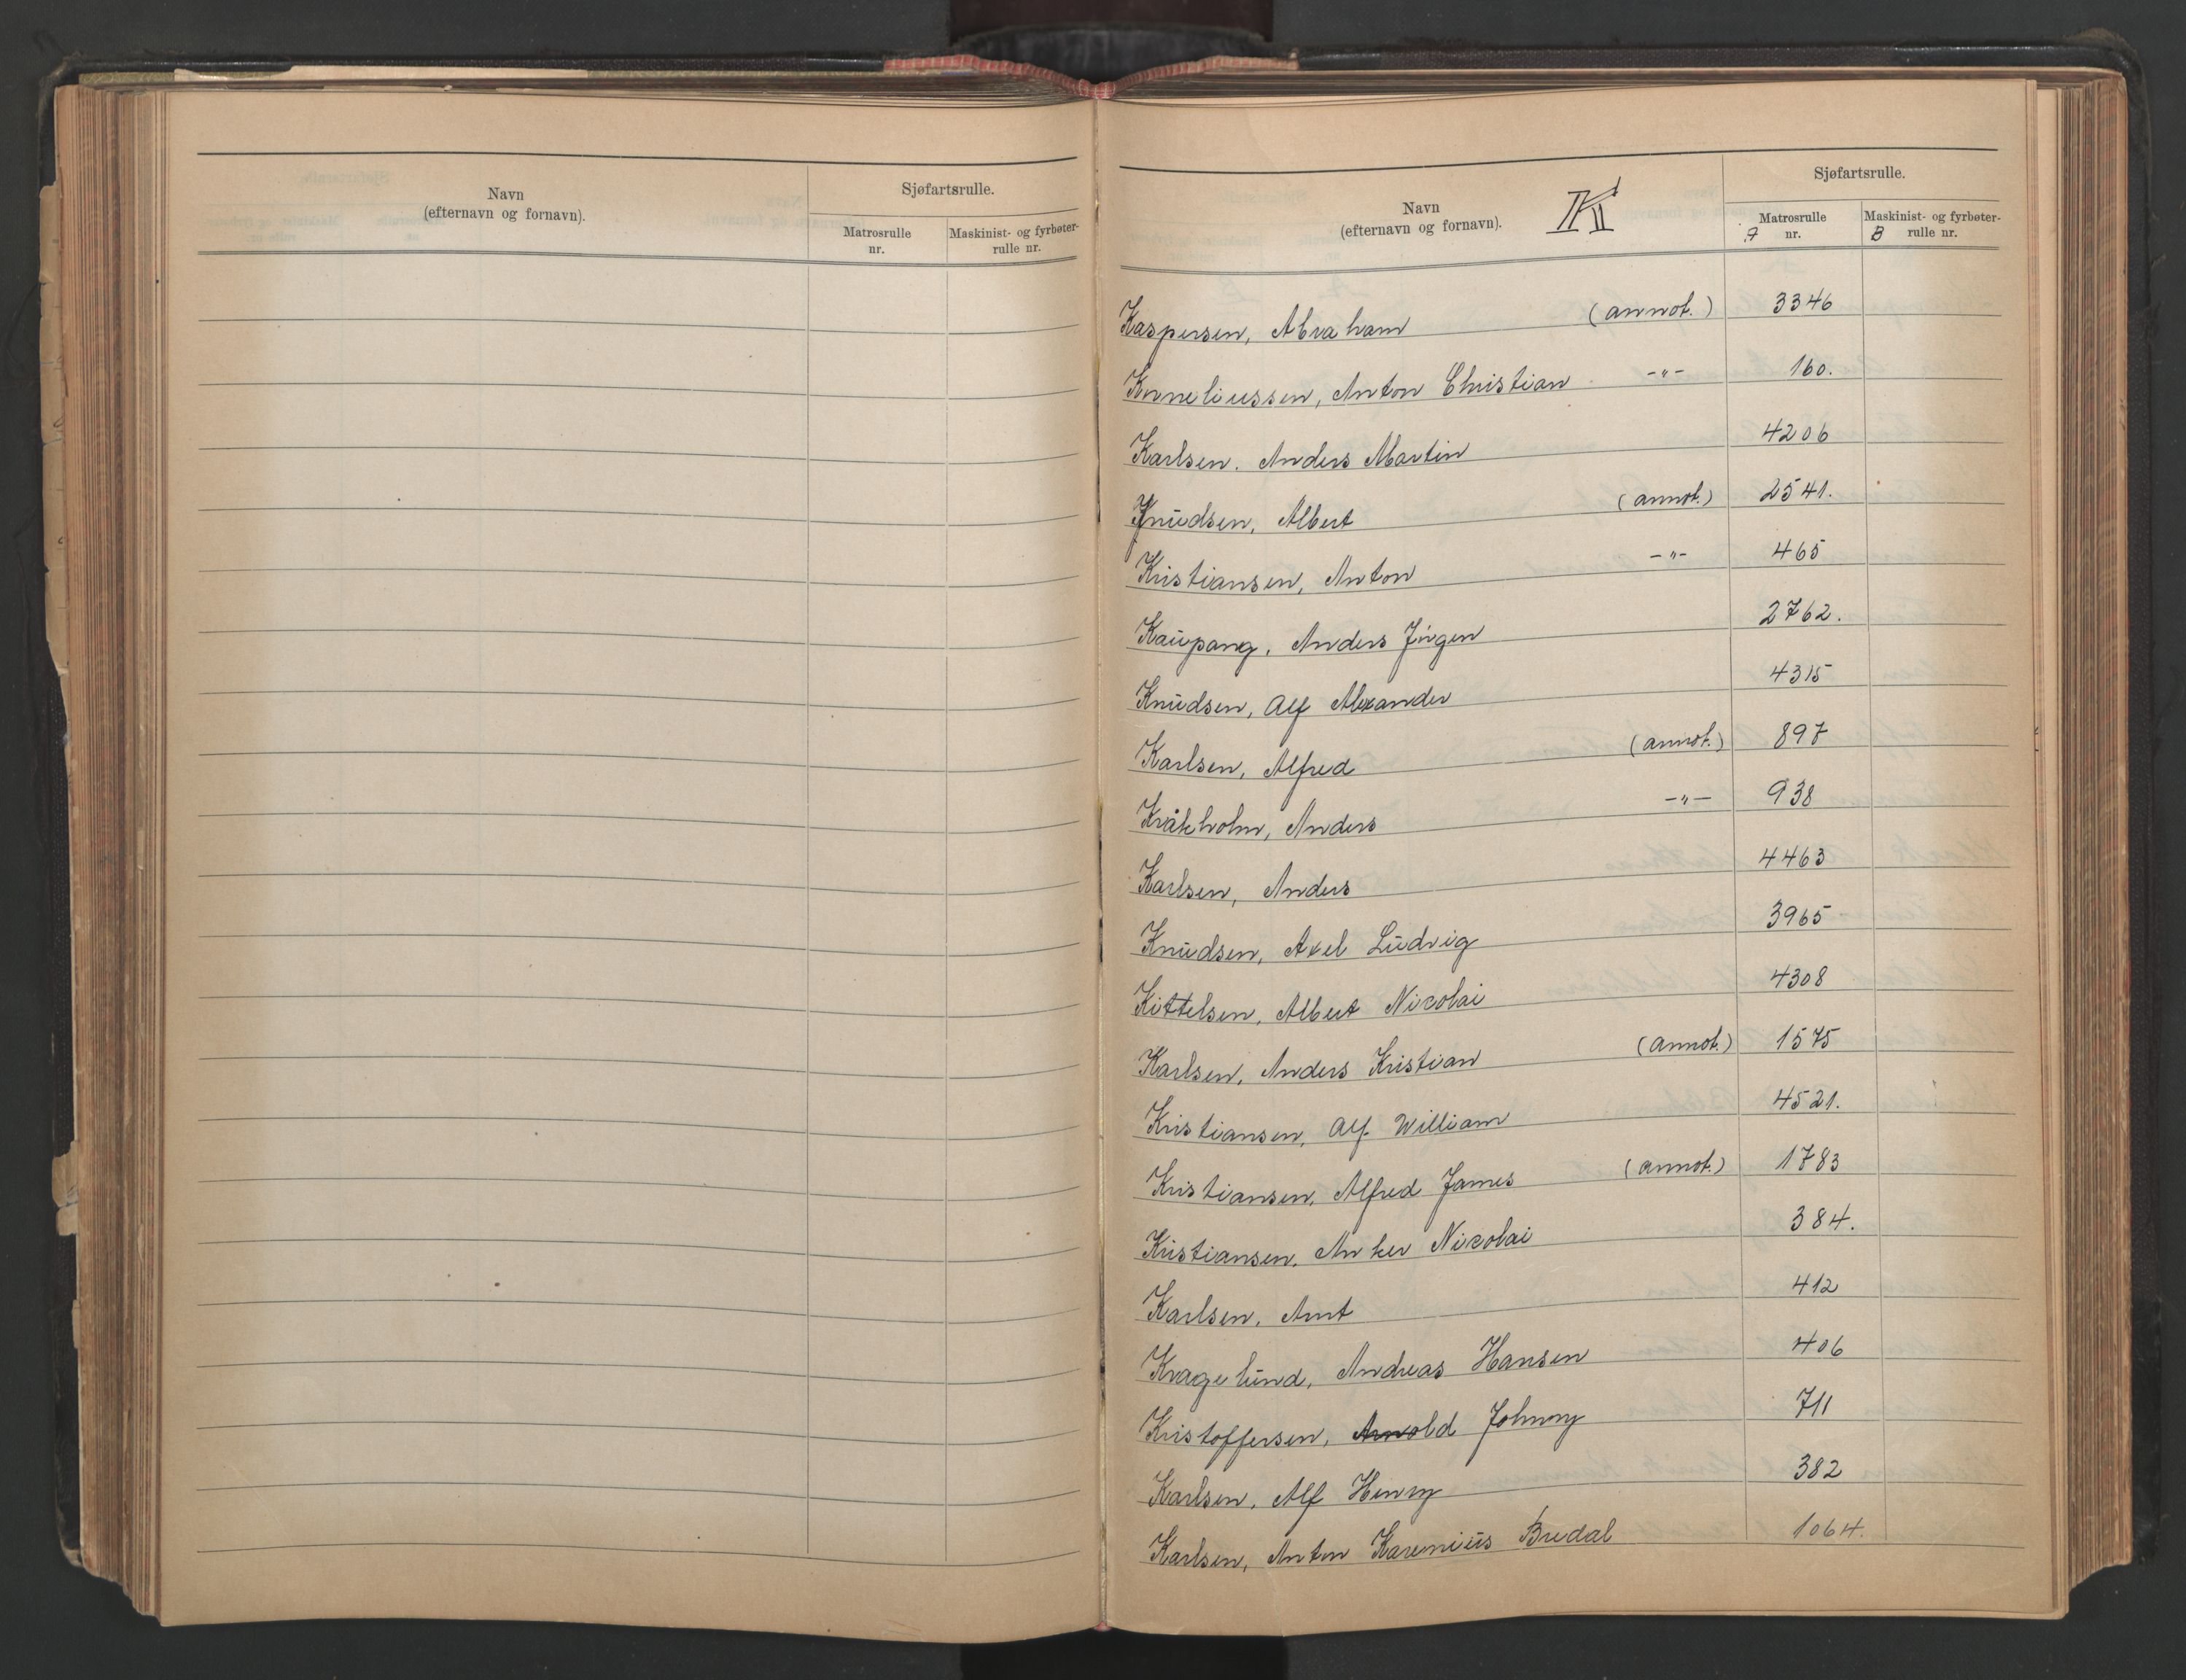 Navn
(efternavn og fornavn).
Sjøfartsrulle.
Matrosrulle
nr.
Maskinist- og fyrbøter-
rulle nr.
Navn
(efternavn og fornavn).
K
Sjøfartsrulle.
Matrosrulle
A nr.
Maskinist- og fyrbøter-
B rulle nr.
Kaspersen, Abraham (annot.) 3346
Korneliussen, Anton Christian -"- 160.
Karlsen. Anders Martin 4206
Knudsen, Albert (annot.) 2541.
Kristiansen, Anton -"- 465
Kaupang, Anders Jørgen 2762.
Knudsen, Alf Alexander 4315
Karlsen, Alfred (annot.) 897
Kråkholm, Anders -"- 938
Karlsen, Anders 4463
Knudsen, Axel Ludvig 3965
Kittelsen, Albert Nicolai 4308
Karlsen, Anders Kristian (annot.) 1575
Kristiansen, Alf William 4521.
Kristiansen, Alfred James (annot.) 1783
Kristiansen, Anker Nicolai 384.
Karlsen, Arnt 412
Kragelund, Andreas Hansen 406
Kristoffersen, Arnold Johnny 711
Karlsen, Alf Henry 382
Karlsen, Anton Karenius Bredal 1064.